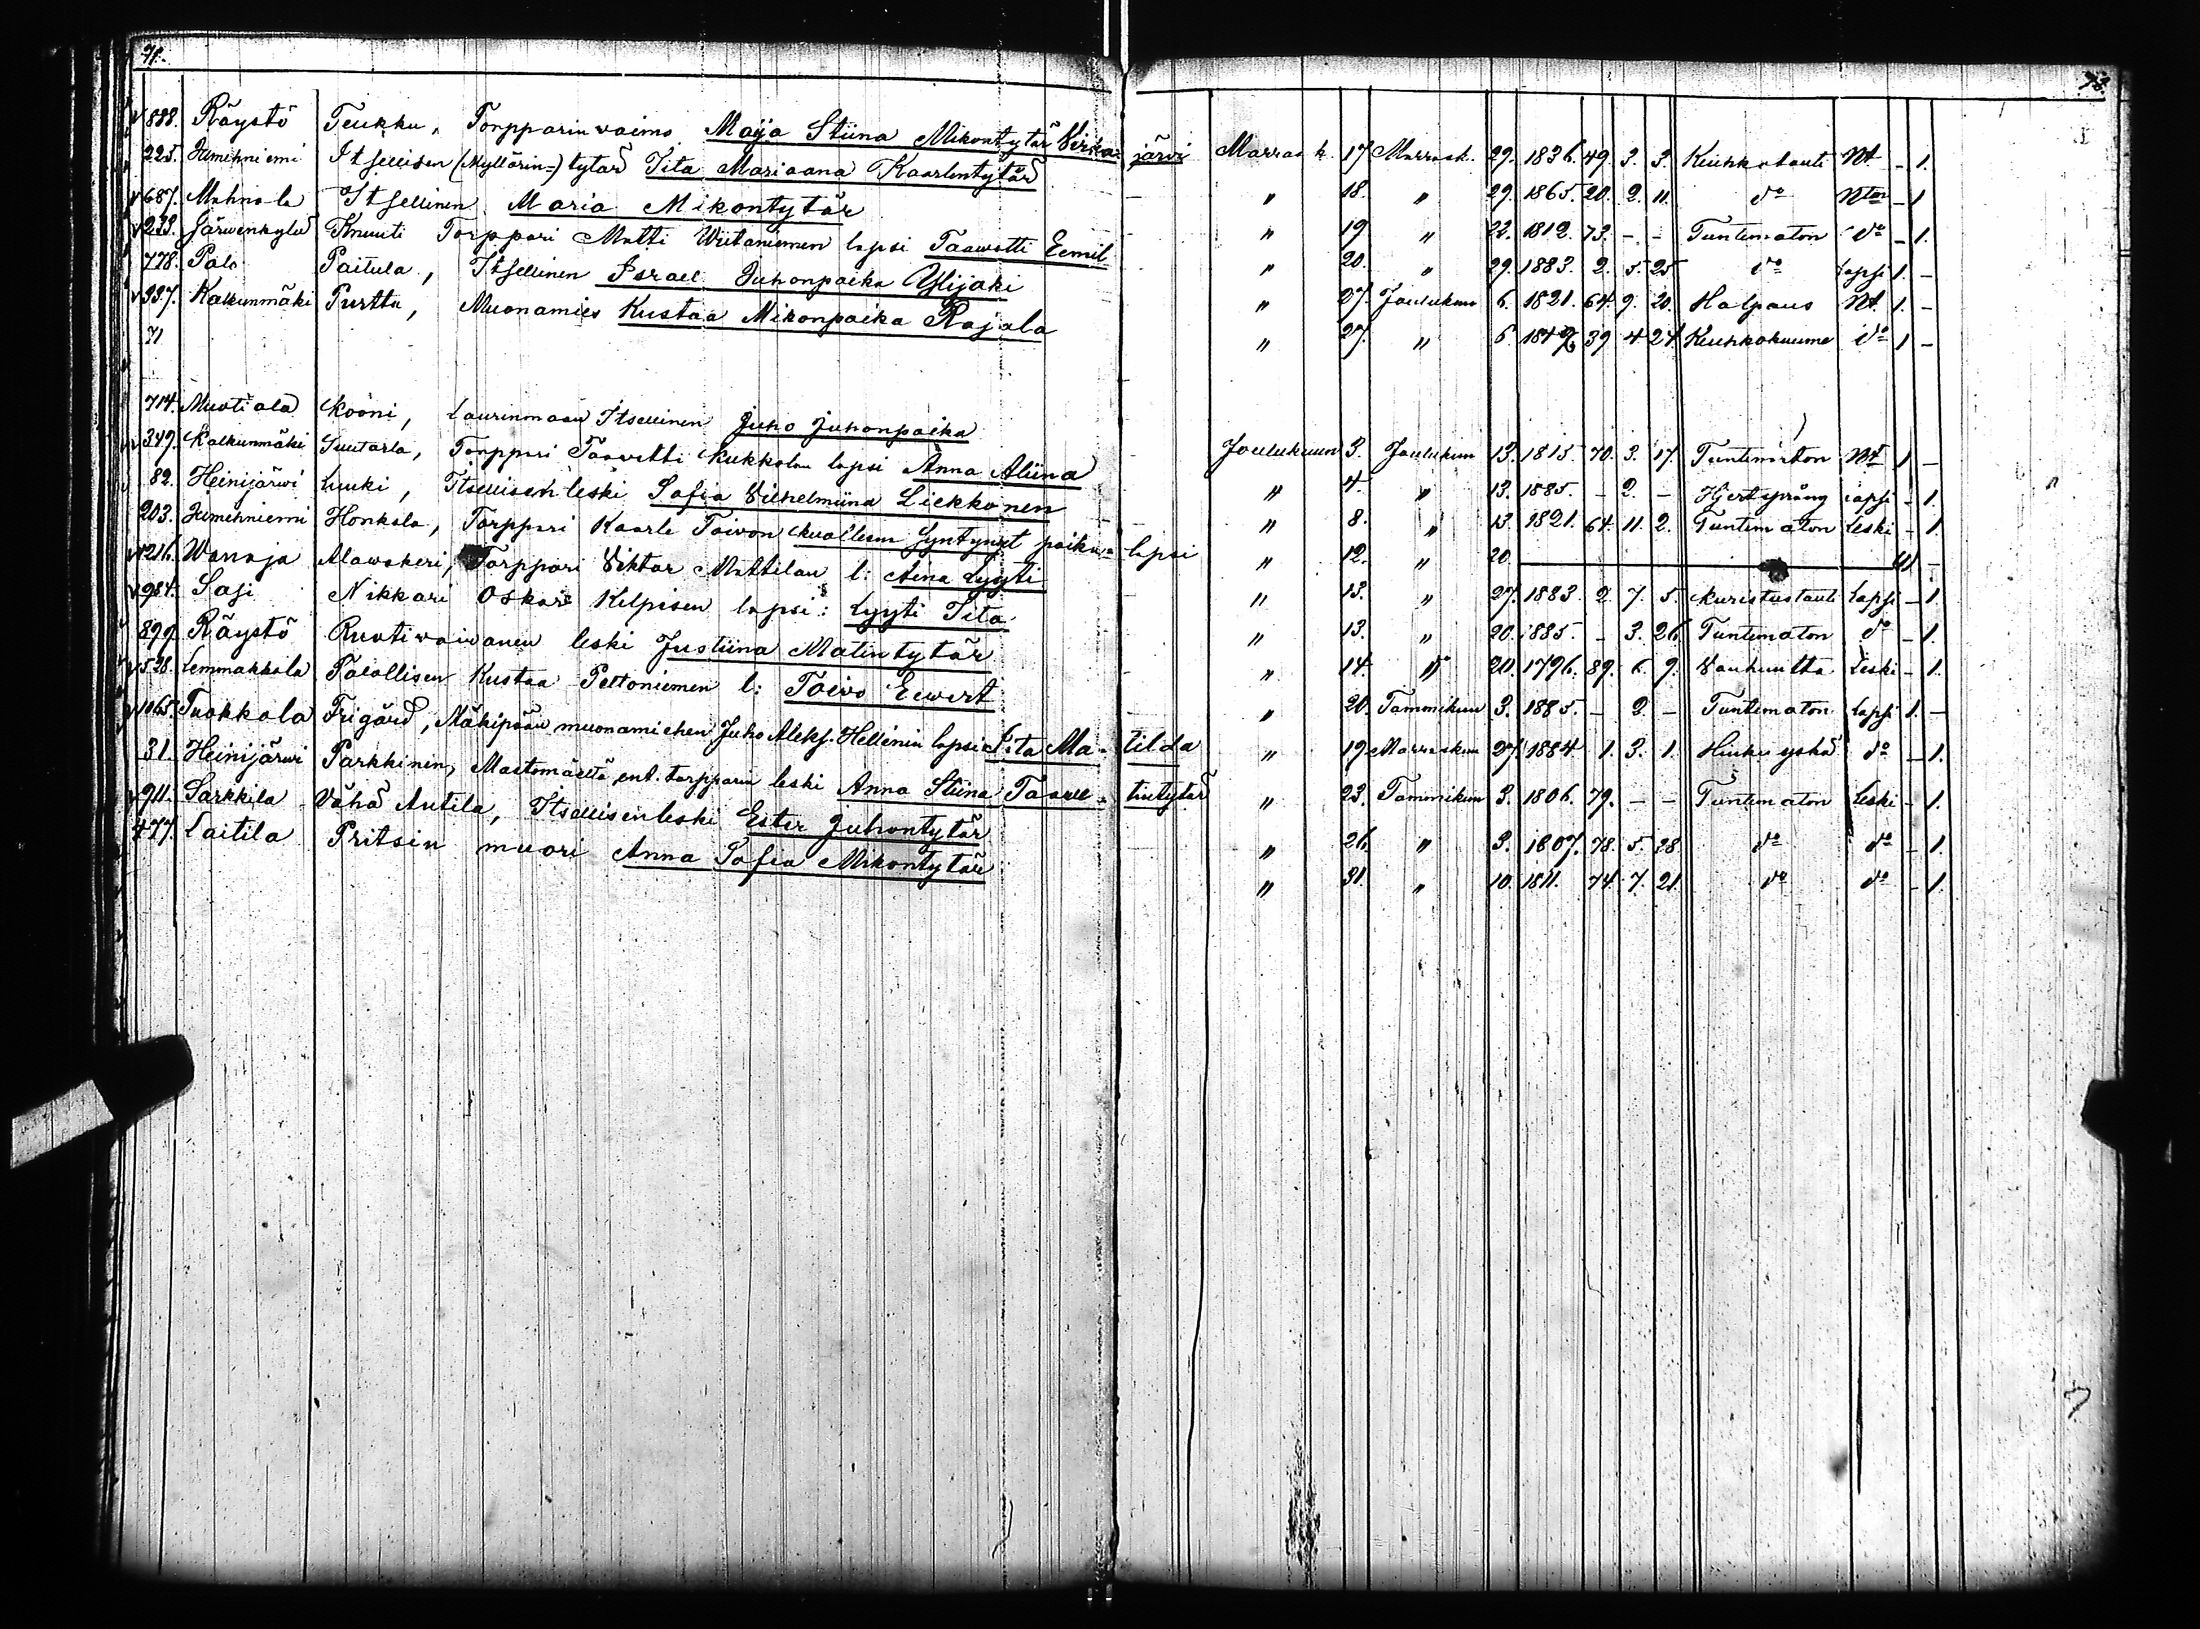 71. 73.
888. Räystö Teukku, Torpparin waimo Maija Stiina Mikontytär Wirta= järvi Marrask. 17 Marrask. 29. 1836. 49. 3. 3. Keuhkotauti Nt. - 1.
225. Hemihniemi Itsellisen (Myllärin=) tytär Iita Mariaana Kaarlentytär " 18. " 29. 1865. 20. 2. 11. do Ntön - 1
687. Mahnala Itsellinen Maria Mikontytär " 19 " 22. 1812. 73. - - Tuntematon do - 1.
233. Järwenkylä Knuuti Torppari Matti Wiitaniemen lapsi Taawetti Eemil " 20. " 29. 1883. 2. 5. 25 do Lapsi 1. -
778. Palo Paitula, Itsellinen Israel Juhonpoika Ylijoki " 27. Joulukuun 6. 1821. 64. 9. 20. Halpaus Nt. 1. -
337. Kalkunmäki Purttu, Muonamies Kustaa Mikonpoika Rajala " 27. " 6. 1846 39 4 24 Keuhkokuume do 1 -
71
714. Muotiala Kööni, Laurinmaan Itsellinen Juho Juhonpoika Joulukuun 3. Joulukuun 13. 1815. 70. 3. 17. Tuntematon Nt 1 -
349. Kalkunmäki Suutarla, Torppari Taawetti Kukkolan lapsi Anna Aliina " 4. " 13. 1885. - 2. - Hjertsprång Lapsi - 1.
82. Heinijärwi Luuki, Itsellisen leski Sofia Wilhelmiina Liekkonen " 8. " 13. 1821. 64. 11. 2. Tuntematon Leski - 1.
203. Hemihniemi Honkala, Torppari Kaarle Toivon kuolleena syntynyt poika= lapsi " 12. " 20.
216. Wanaja Alawaheri, Torppari Viktor Mattilan l: Aina Lyyti " 13. " 27. 1883 2. 7. 5. Kuristustauti Lapsi - 1.
984. Sasi Nikkari Oskar Kilpisen lapsi: Lyyti Iita " 13. " 20. 1885. - 3. 26 Tuntematon do - 1.
899. Räystö Ruotiwaiwanen leski Justiina Matintytär " 14. " 20. 1796. 89. 6. 9. Wanhuutta Leski - 1.
528. Lemmakkala Talollisen Kustaa Peltoniemen l: Toivo Eewert " 20. Tammikuun 3. 1885. - 2. - Tuntematon Lapsi 1. -
1065. Tuokkola Frigård, Mäkipään muonamiehen Juho Aleks. Hellenin lapsi Iita Ma= tilda " 19 Marraskuun 27. 1884 1. 3. 1. Hinku yskä do - 1.
31. Heinijärwi Parkkinen, Mastomäeltä ent. torpparin leski Anna Stiina Taawe= tintytär " 23. Tammikuun 3. 1806. 79. - - Tuntematon Leski - 1.
911. Sarkkila Vähä Antila, Itsellisen leski Ester Juhontytär " 26. " 3. 1807. 78. 5. 28. do do - 1.
477. Laitila Pritsin muori Anna Sofia Mikontytär " 31. " 10. 1811. 74. 7. 21. do do - 1.